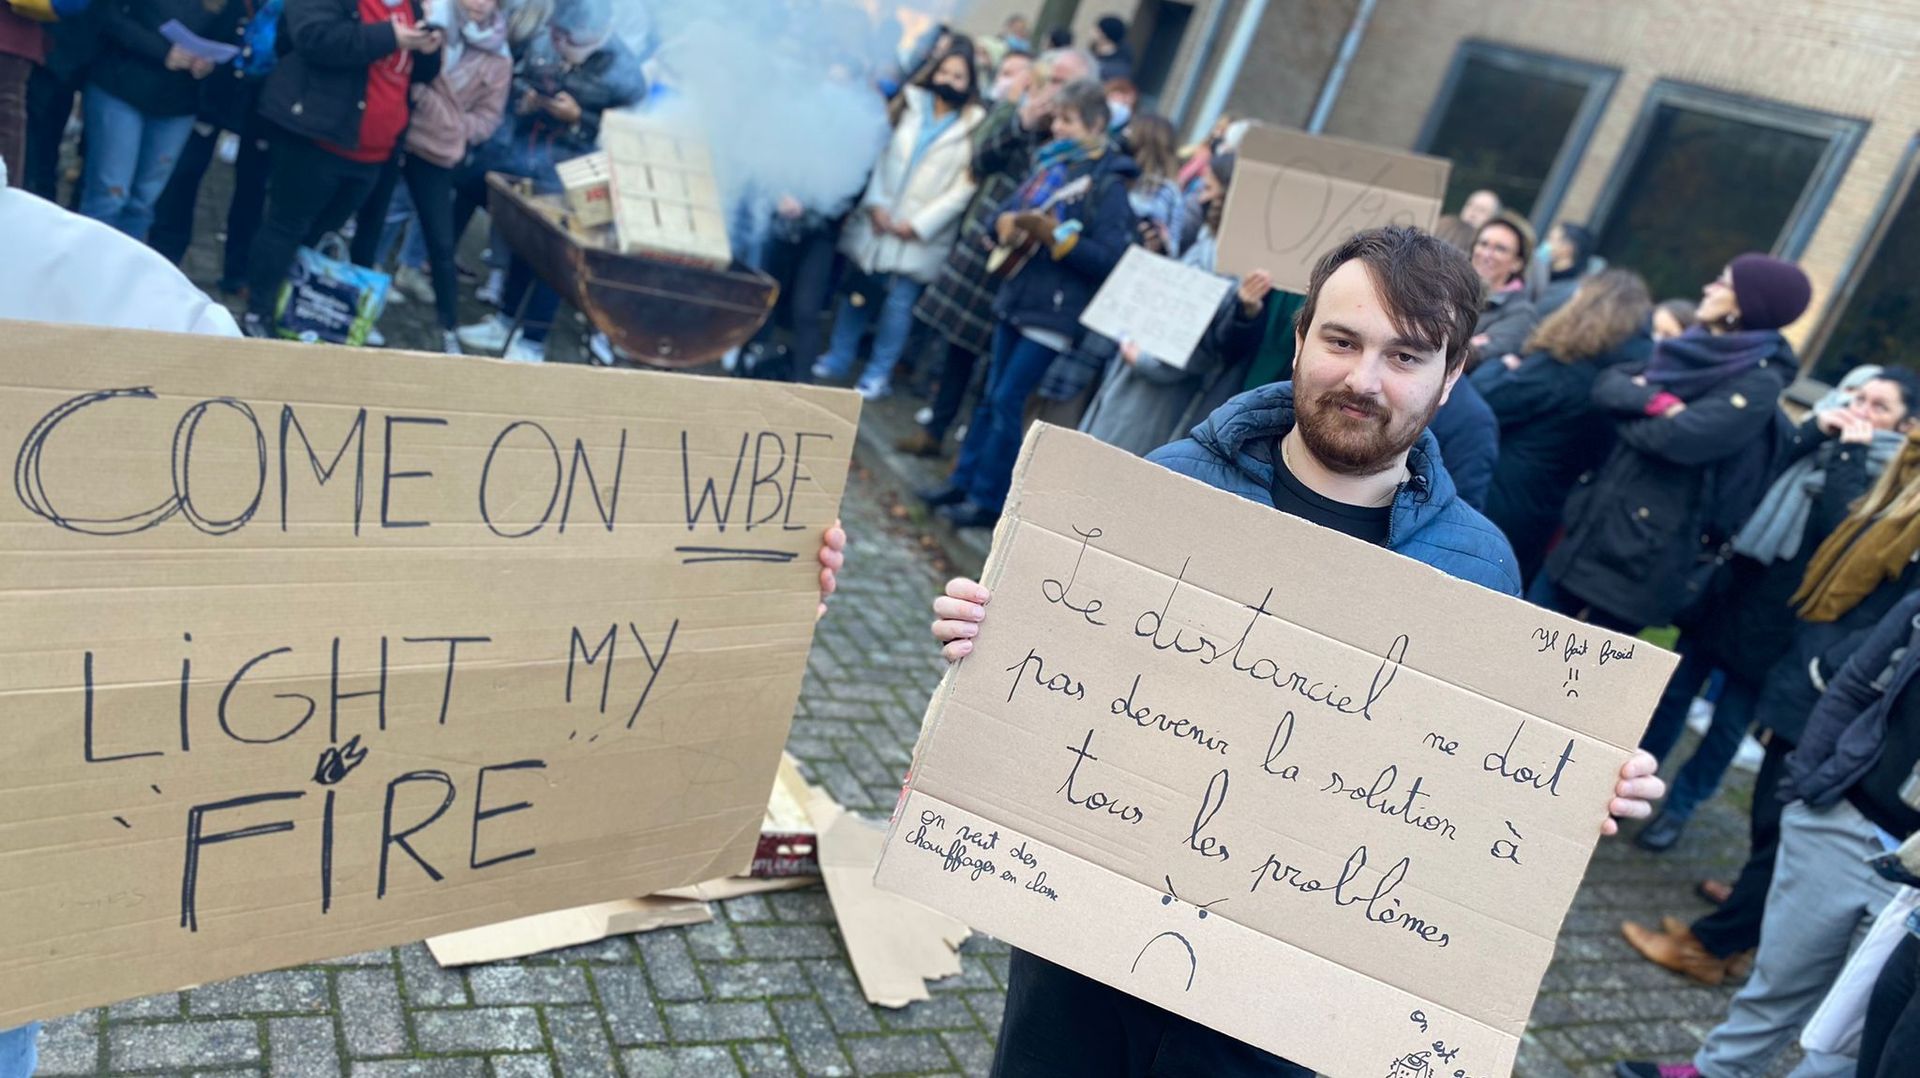 COME ON WBE
LiGHT MY
FiRE
Le distanciel ne doit
pas devenir la solution à
tous les problèmes
Il fait froid
on veut des
chauffages en classe
on
est